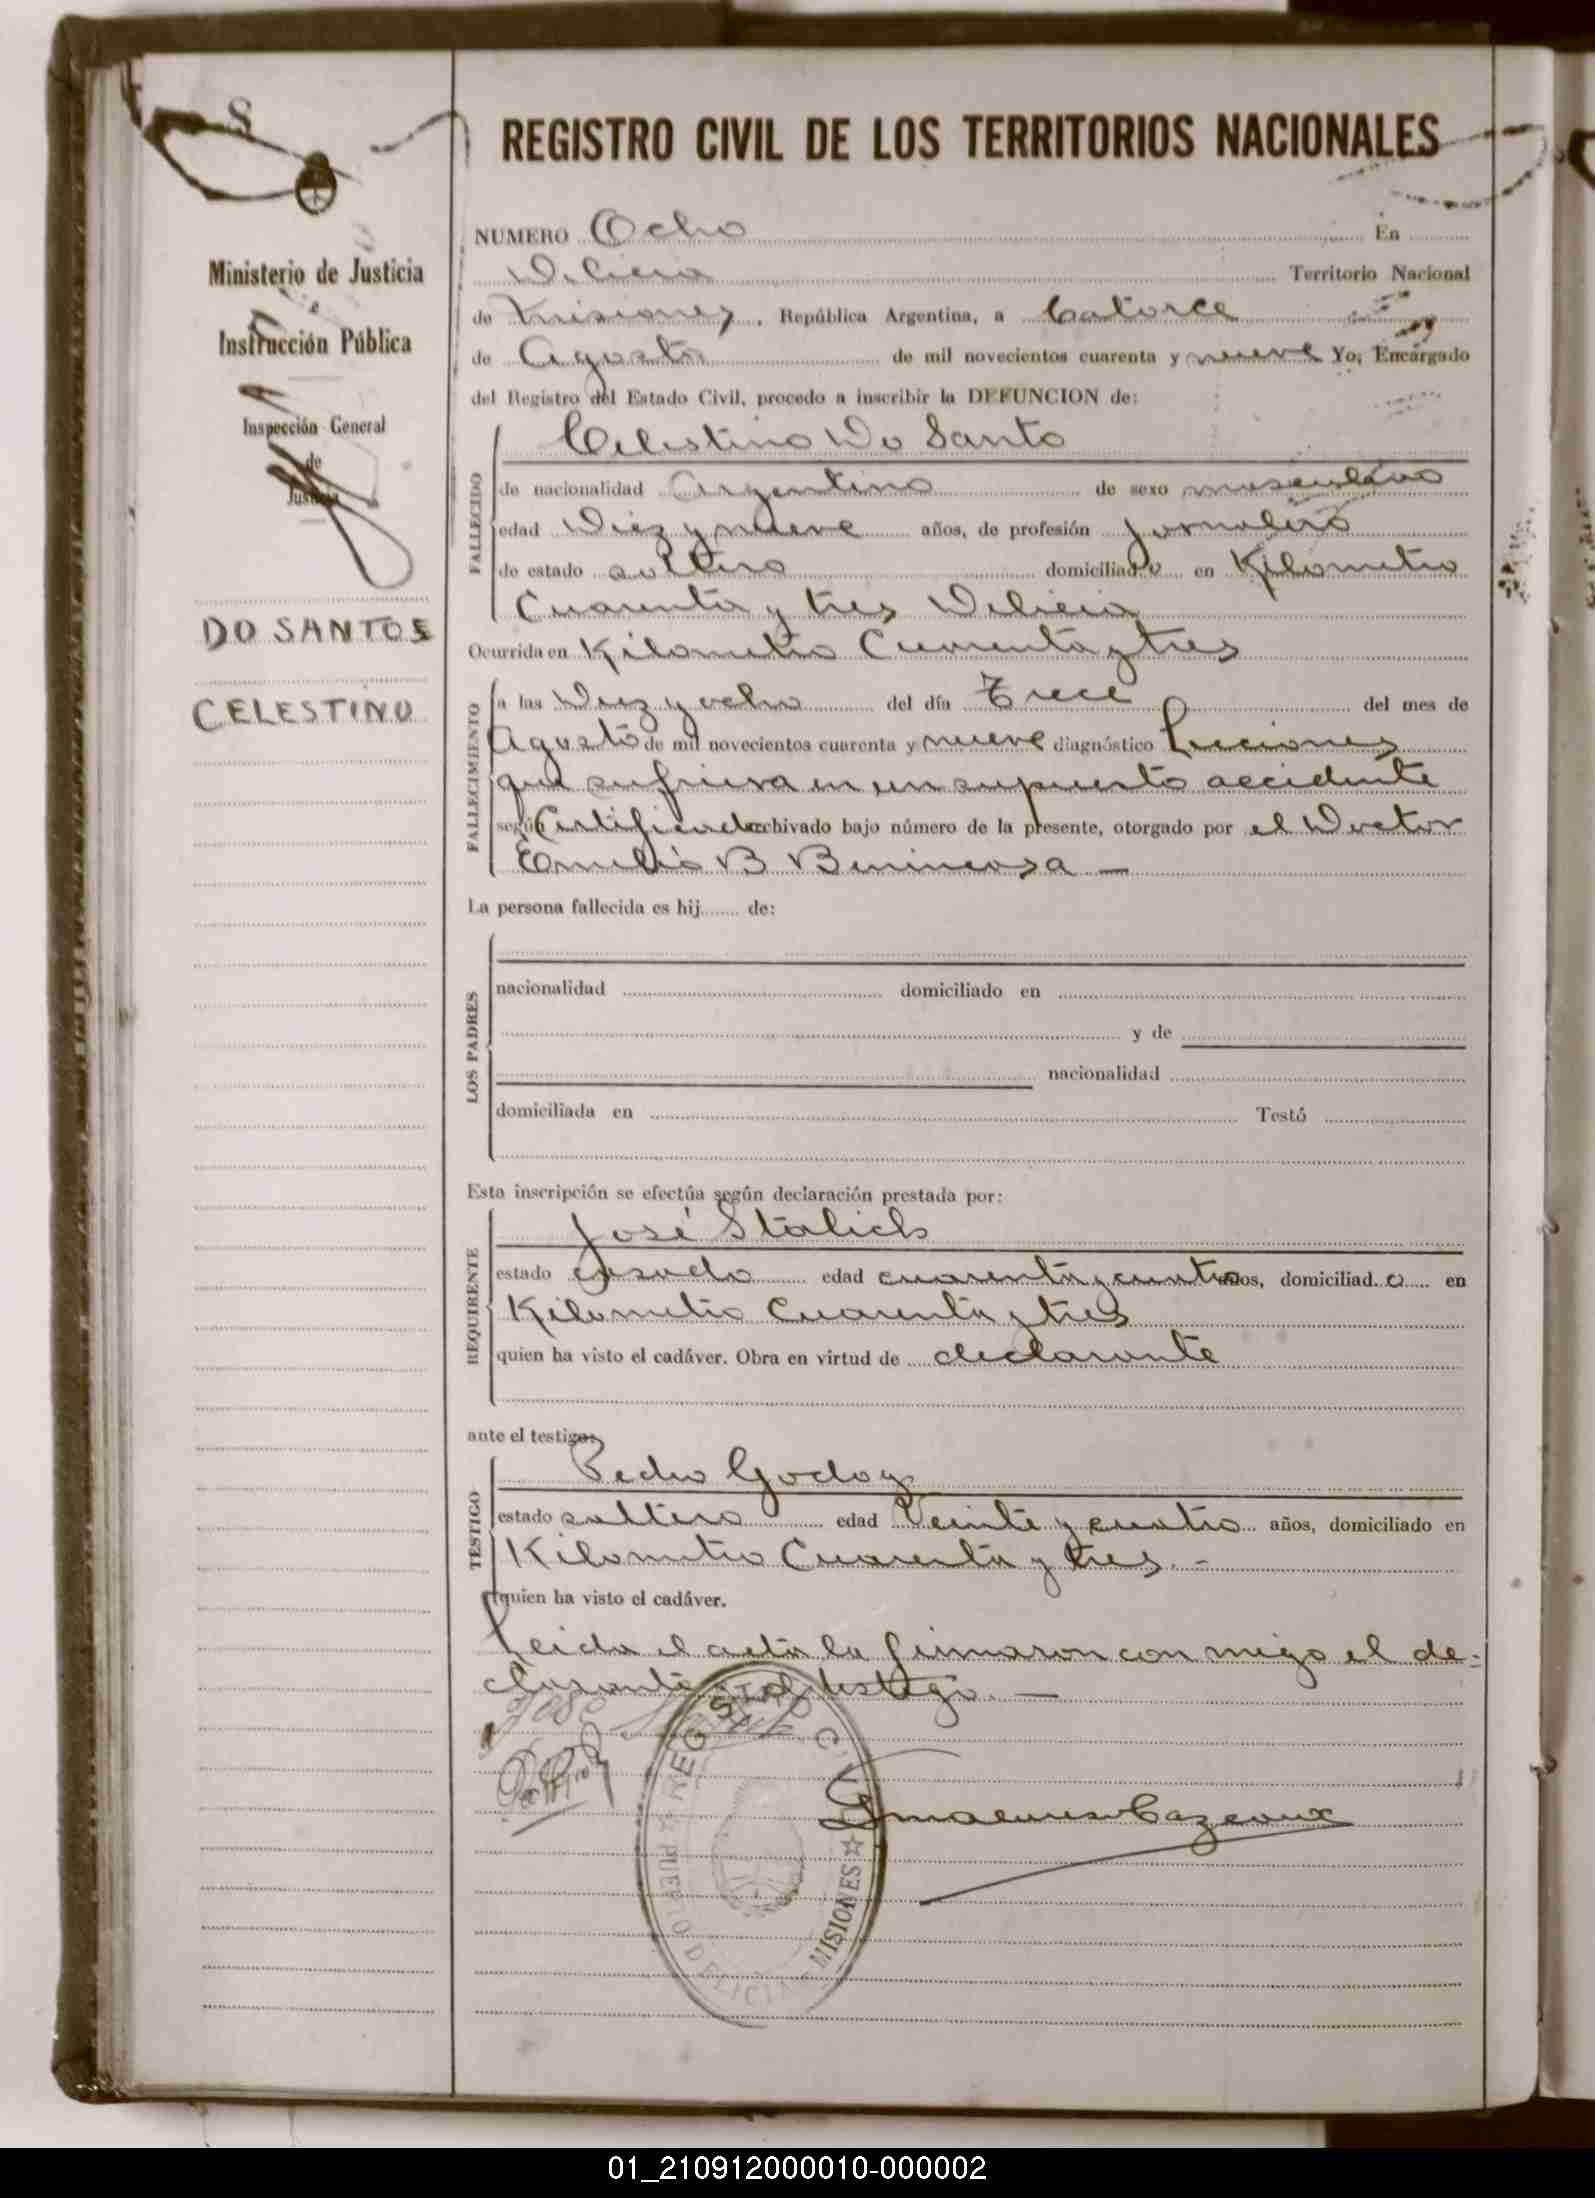 8
REGISTRO CIVIL DE LOS TERRITORIOS NACIONALES
Ministerio de Justicia
e
Instrucción Pública
Inspección General
de
Justicia
DO SANTOS
CELESTINO
NUMERO Ocho En
Delicia Territorio Nacional
de Misiones, República Argentina, a Catorce
de Agosto de mil novecientos cuarenta y nueve Yo, Encargado
del Registro del Estado Civil, procedo a inscribir la DEFUNCION de:
FALLECIDO
Celestino Do Santo
de nacionalidad Argentino de sexo masculino
edad Diez y nueve años, de profesión jornalero
de estado soltero domiciliado en Kilometro
Cuarenta y tres Delicia
Ocurrida en Kilometro Cuarenta y tres
FALLECIMIENTO
a las Diez y ocho del día Trece del mes de
Agosto de mil novecientos cuarenta y nueve diagnóstico Leciones
que sufriera en un supuesto accidente
según Certificado archivado bajo número de la presente, otorgado por el Doctor
Emilio B
La persona fallecida es hij de:
LOS PADRES
nacionalidad domiciliado en
y de
nacionalidad
domiciliada en Testó
Esta inscripción se efectúa según declaración prestada por:
REQUIRENTE
José Stalich
estado casado edad cuarenta y cuatro años, domiciliado en
Kilometro Cuarenta y tres
quien ha visto el cadáver. Obra en virtud de declarante
ante el testigo:
TESTIGO
Pedro Godoy
estado soltero edad Veinte y cuatro años, domiciliado en
Kilometro Cuarenta y tres. -
quien ha visto el cadáver.
Leida el acta la firmaron con migo el de-
clarante y el testigo. —
José
REGISTRO CIVIL
Cazeaux
PUERTO DELICIA - MISIONES
01_210912000010-000002